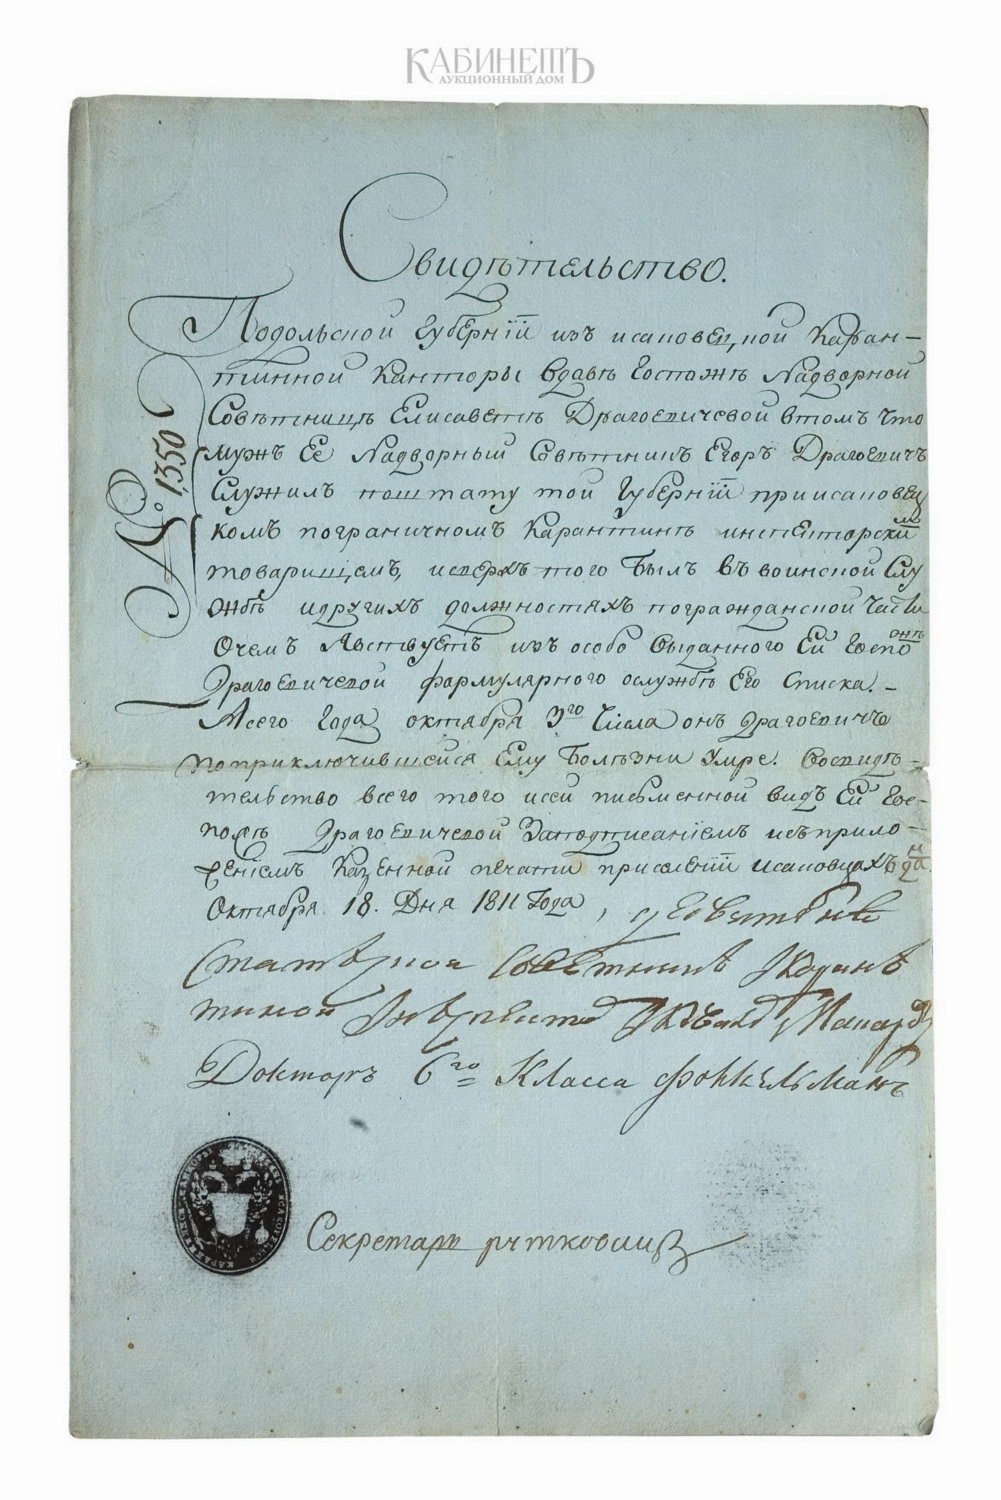 КАБИНЕТЪ
АУКЦИОННЫЙ ДОМ
Свидѣтельство.
№ 1350
Подольской Губернїй изъ исаковецкой Каран-
тинной Канторы вдавѣ Госпожѣ Надворной
Совѣтницѣ Елисаветѣ Драгоевичевой втомъ что
мужъ Ее Надворный Совѣтникъ Егоръ Драгоевичъ
Служилъ поштату той Губернїй приисаковец
комъ пограничномъ Карантинѣ инспекторскимъ
товарищемъ, исверхъ того былъ въ воинской Слу
жбѣ идругихъ должностяхъ погражданской части
Очемъ Явствуетъ изъ особо выданного Ей Госпожѣ
Драгоевичевой формулярного ослужбѣ Его Списка. -
Асего Года октября 3го Числа онъ Драгоевичъ
поприключившейся Ему Болѣзни Умре. Восвидѣ-
тельство всего того исей письменной видъ Ей Гос-
пожѣ Драгоевичевой Заподписанїемъ исприло-
женїемъ Казенной печати приселенїй Исаковцахъ данъ
Октября 18. Дня 1811 Года, действителне
Статской Советникъ Каран
тинной
Докторъ 6го Класса
Секретарь